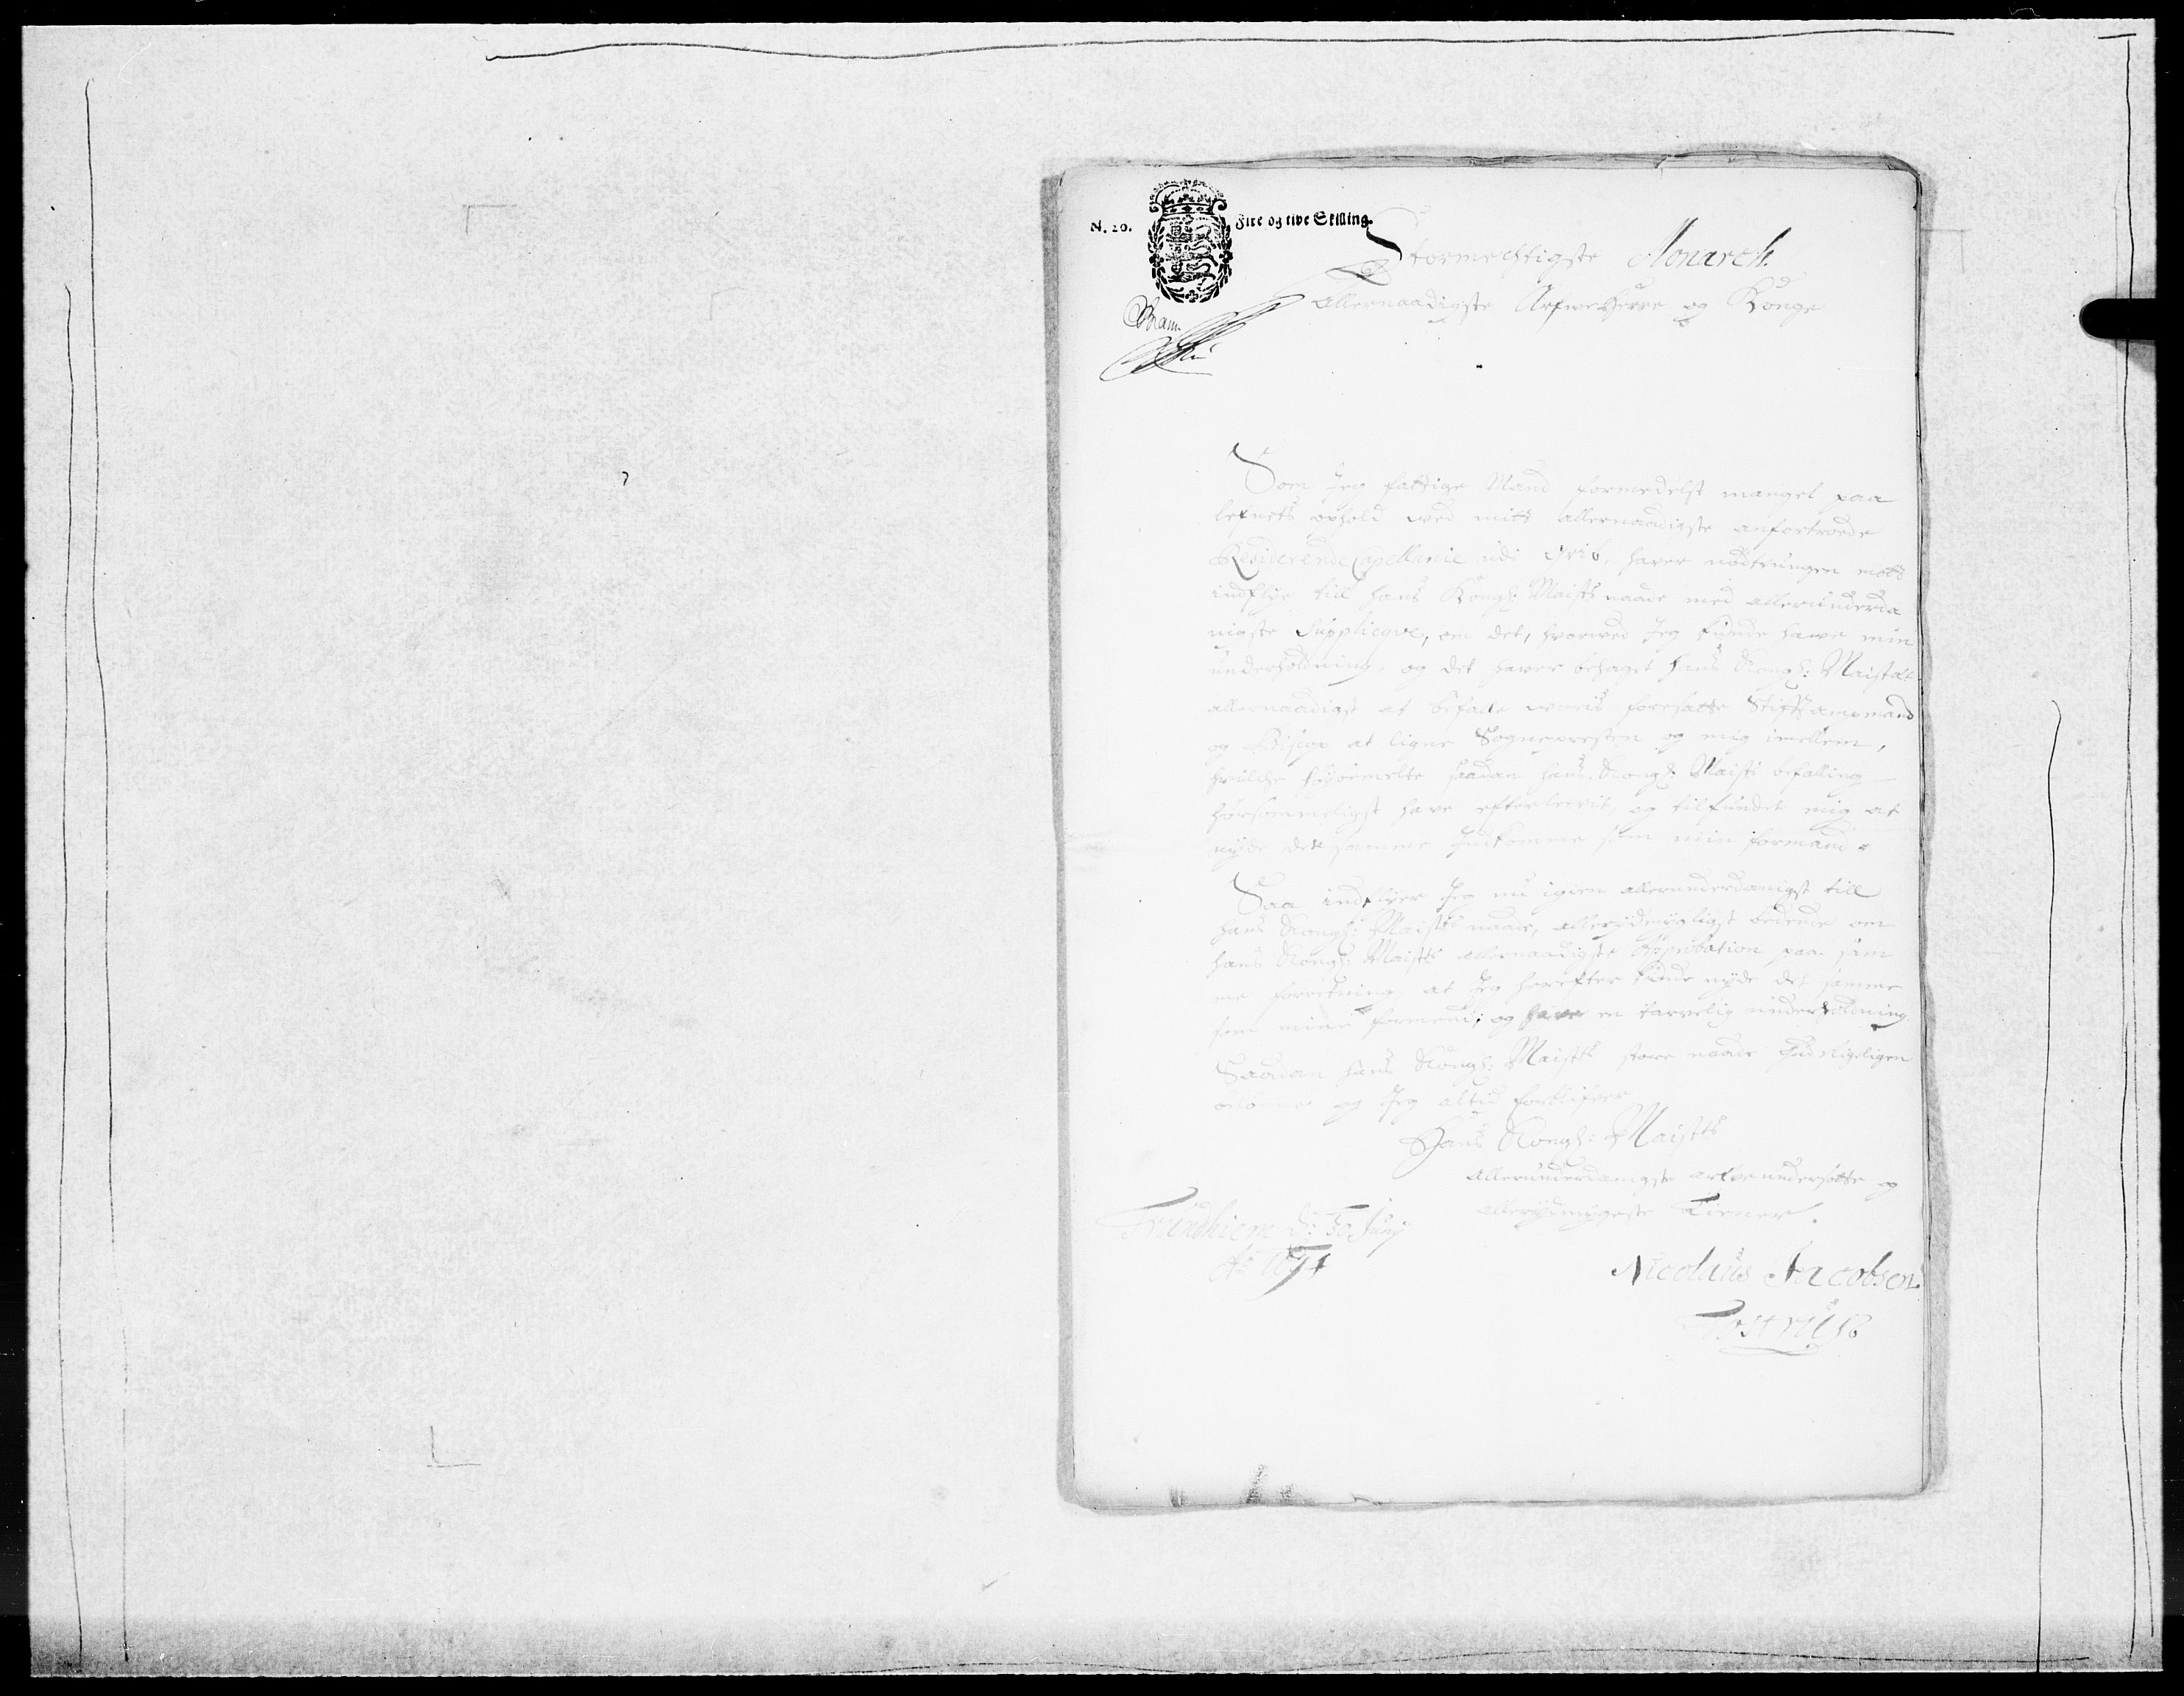 N. 20. Fire og tive Skilling.
Stormechtigste Monarch.
Allernaadigste Arfwe Herre og Konge
Som Jeg fattige Mand formedelst mangel paa
lefnets ophold ved mitt allernaadigste anfortroede
Residerende Capellanie udi, haver nødtrungen mott
indflye till hans Kongl: Maists naade med allerunderda
nigste Supplicqve, om det, hvorved Jeg kunde have min
underholdning, og det haver behaget hans Kongl: Maistät
allernaadigst at befalle voris foresatte Stifftampmand
og Biscop at ligne Sognepresten og mig imellem,
hvilche saadan hans Kongl: Maists befalling
hørsommeligst have efterlevit og tilfundet mig at
nyde det samme Indkomme som min formand.
Saa indflyer Jeg nu igien allerunderdanigst till
hans Kongl: Maists naade, allerydmygligst bedende om
hans Kongl: Maists allernaadigste Approbation paa sam
me forretning, at Jeg herefter kunde nyde det samme
som mine formend; og have en tarvelig underholdning
Saadan hans Kongl: Maists store naade Gud rigeligen
belønner og Jeg altid forblifver
Hans Kongl: Maists
allerunderdanigste arfve undersotte og
allerydmygeste Tiener.
Trundhiem d: 30 Junij
Ao 1694
Nicolaus Jacobsen
Tostrup